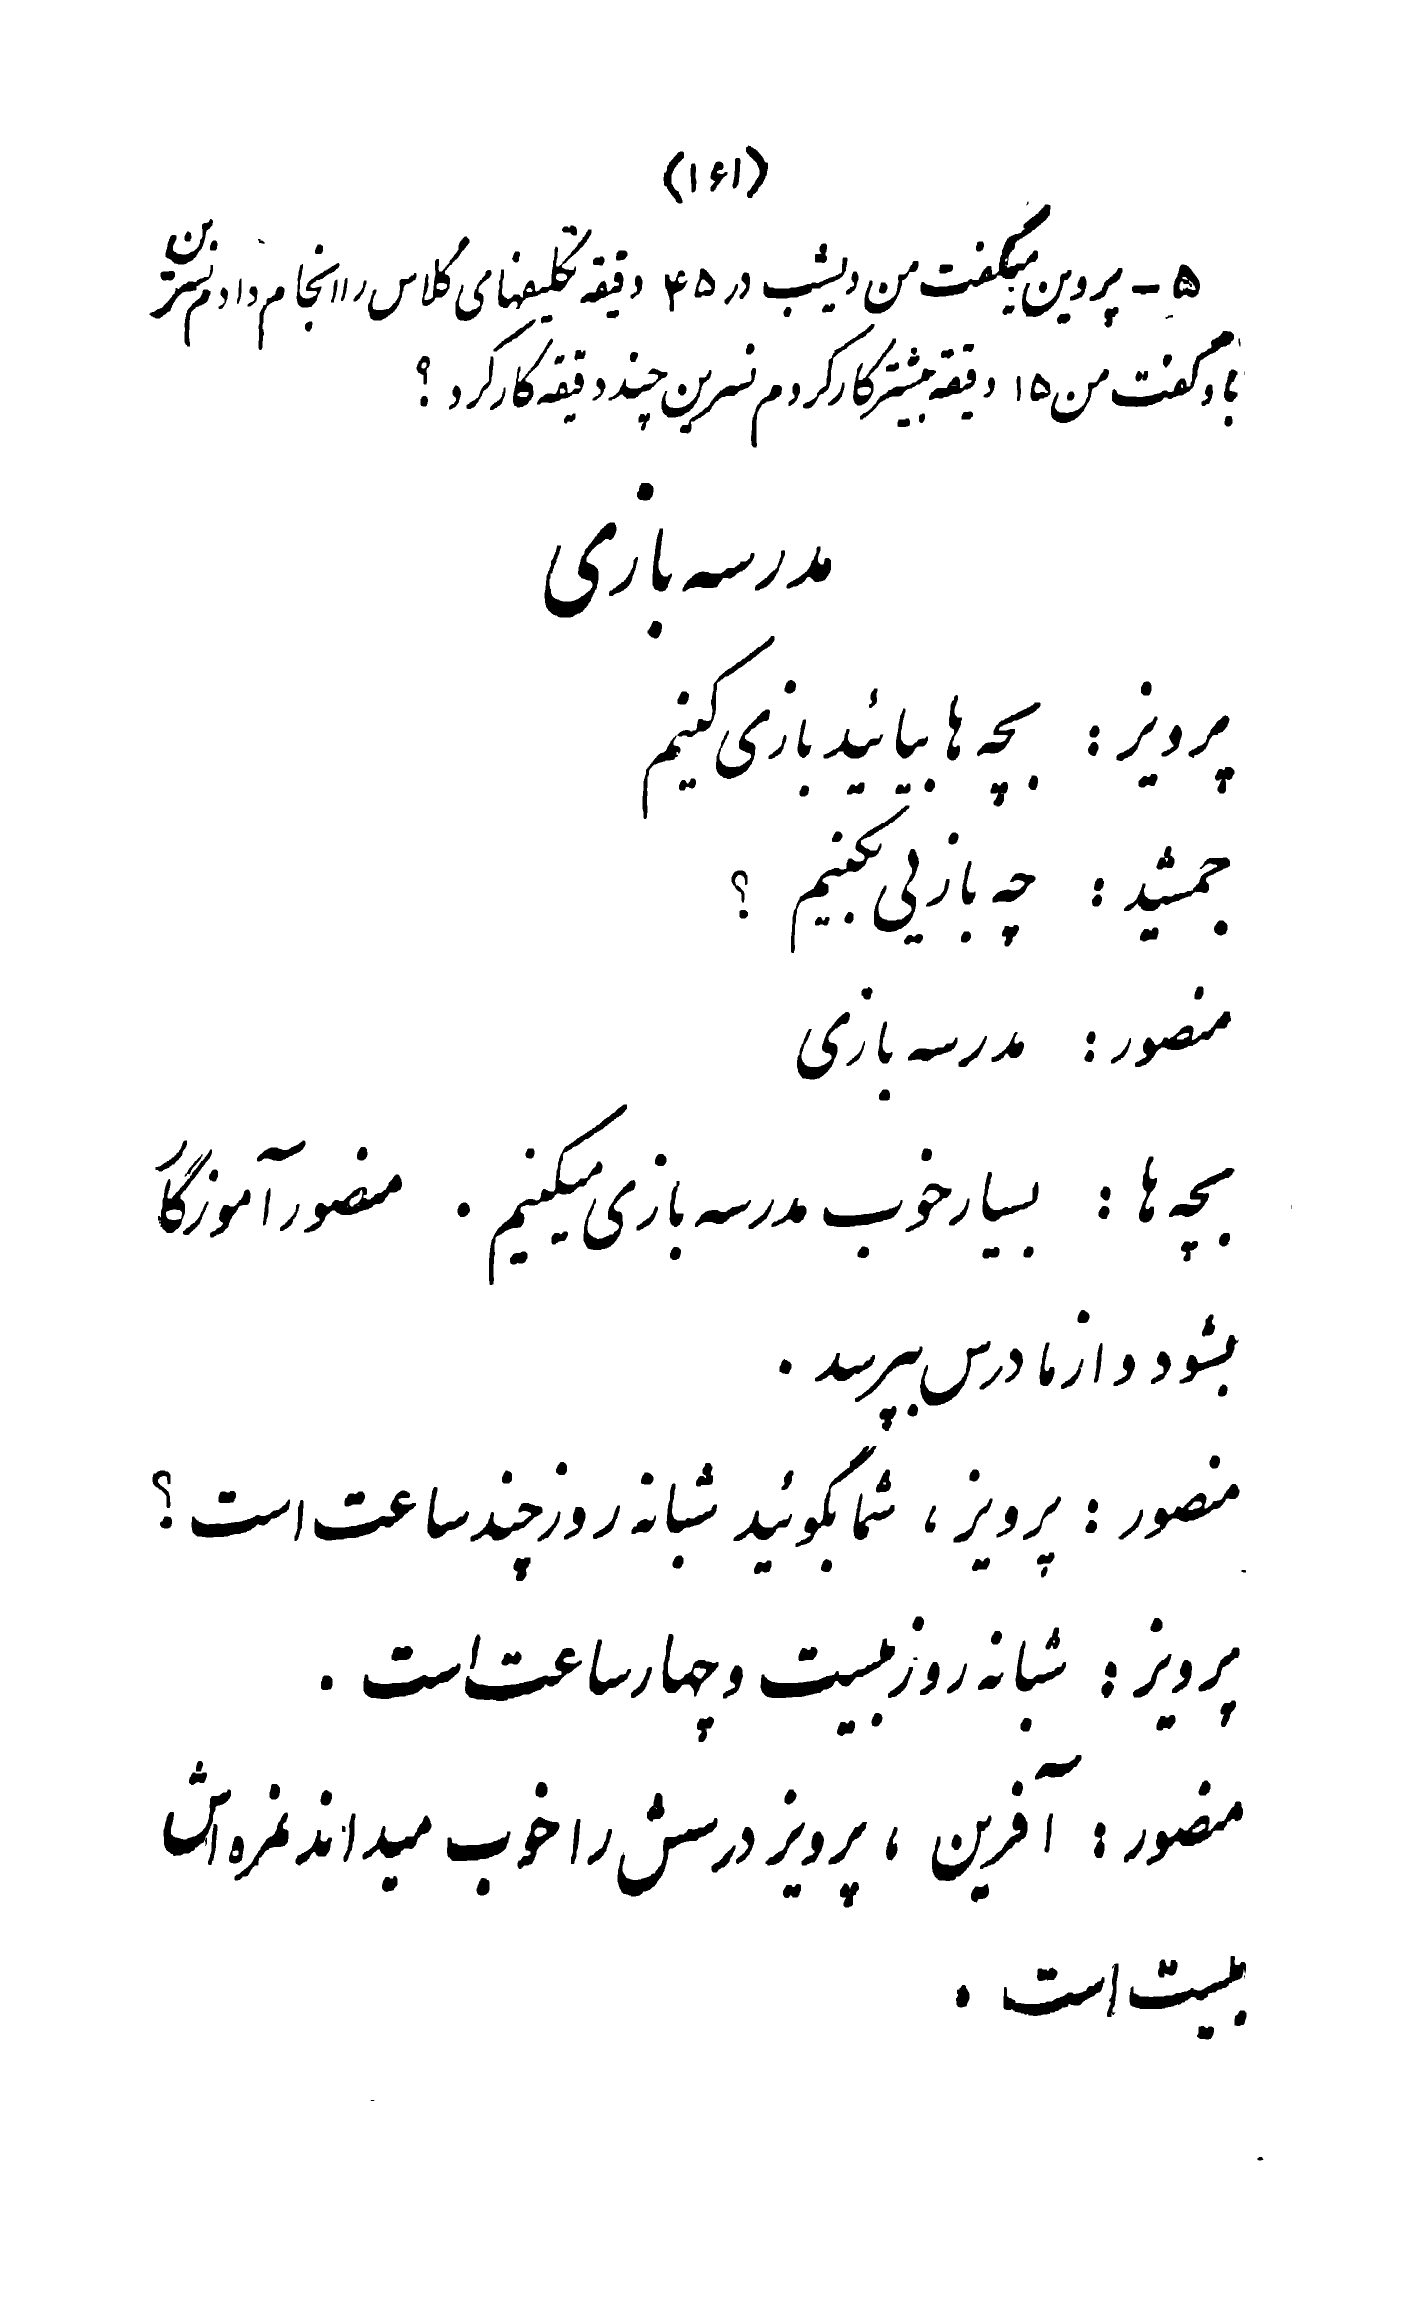 (۱۶۱)
۵ - پروین میگفت من دیشب در ۴۵ دقیقه تکلیفهای کلاس را انجام دادم نسرین
باو گفت من ۱۵ دقیقه بیشتر کار کردم نسرین چند دقیقه کار کرد ؟
مدرسه بازی
پرویز : بچه ها بیائید بازی کنیم
جمشید : چه بازیی بکنیم ؟
منصور : مدرسه بازی
بچه ها : بسیار خوب مدرسه بازی میکنیم . منصور آموزگار
بشود و از ما درس بپرسد .
منصور : پرویز ، شما بگوئید شبانه روز چند ساعت است ؟
پرویز : شبانه روز بیست و چهار ساعت است .
منصور : آفرین ، پرویز درسش را خوب میداند نمره اش
بیست است .